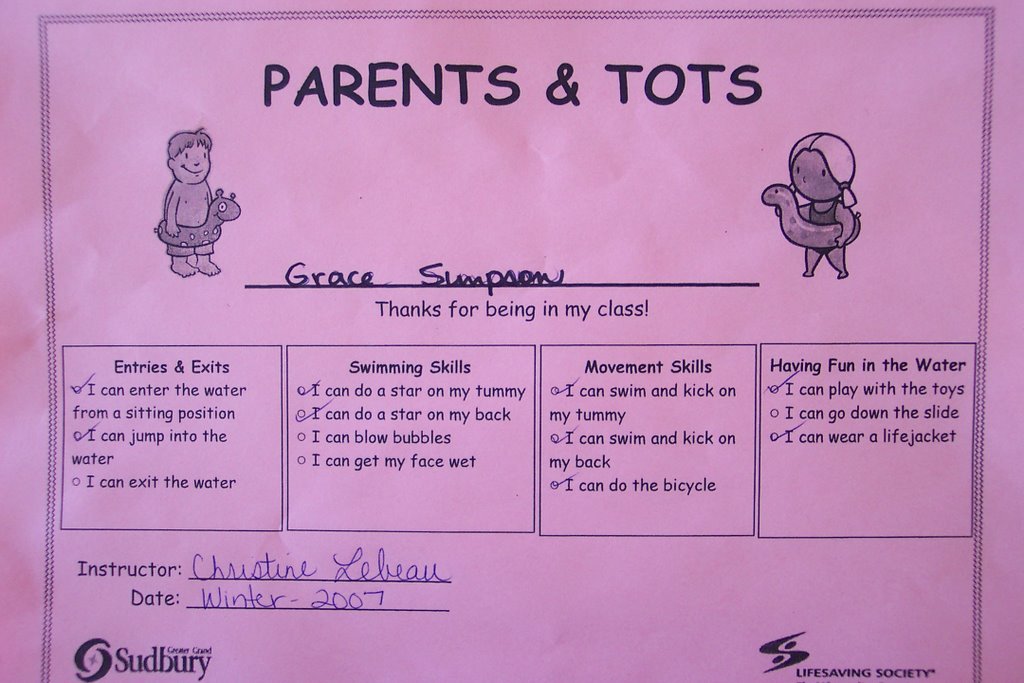 PARENTS & TOTS
Grace Simpson
Thanks for being in my class!
Entries & Exits
I can enter the water
from a sitting position
I can jump into the
water
I can exit the water
Swimming Skills
I can do a star on my tummy
I can do a star on my back
I can blow bubbles
I can get my face wet
Movement Skills
I can swim and kick on
my tummy
I can swim and kick on
my back
I can do the bicycle
Having Fun in the Water
I can play with the toys
I can go down the slide
I can wear a lifejacket
Instructor: Christine Lebeau
Date: Winter - 2007
Greater Grand
Sudbury
LIFESAVING SOCIETY